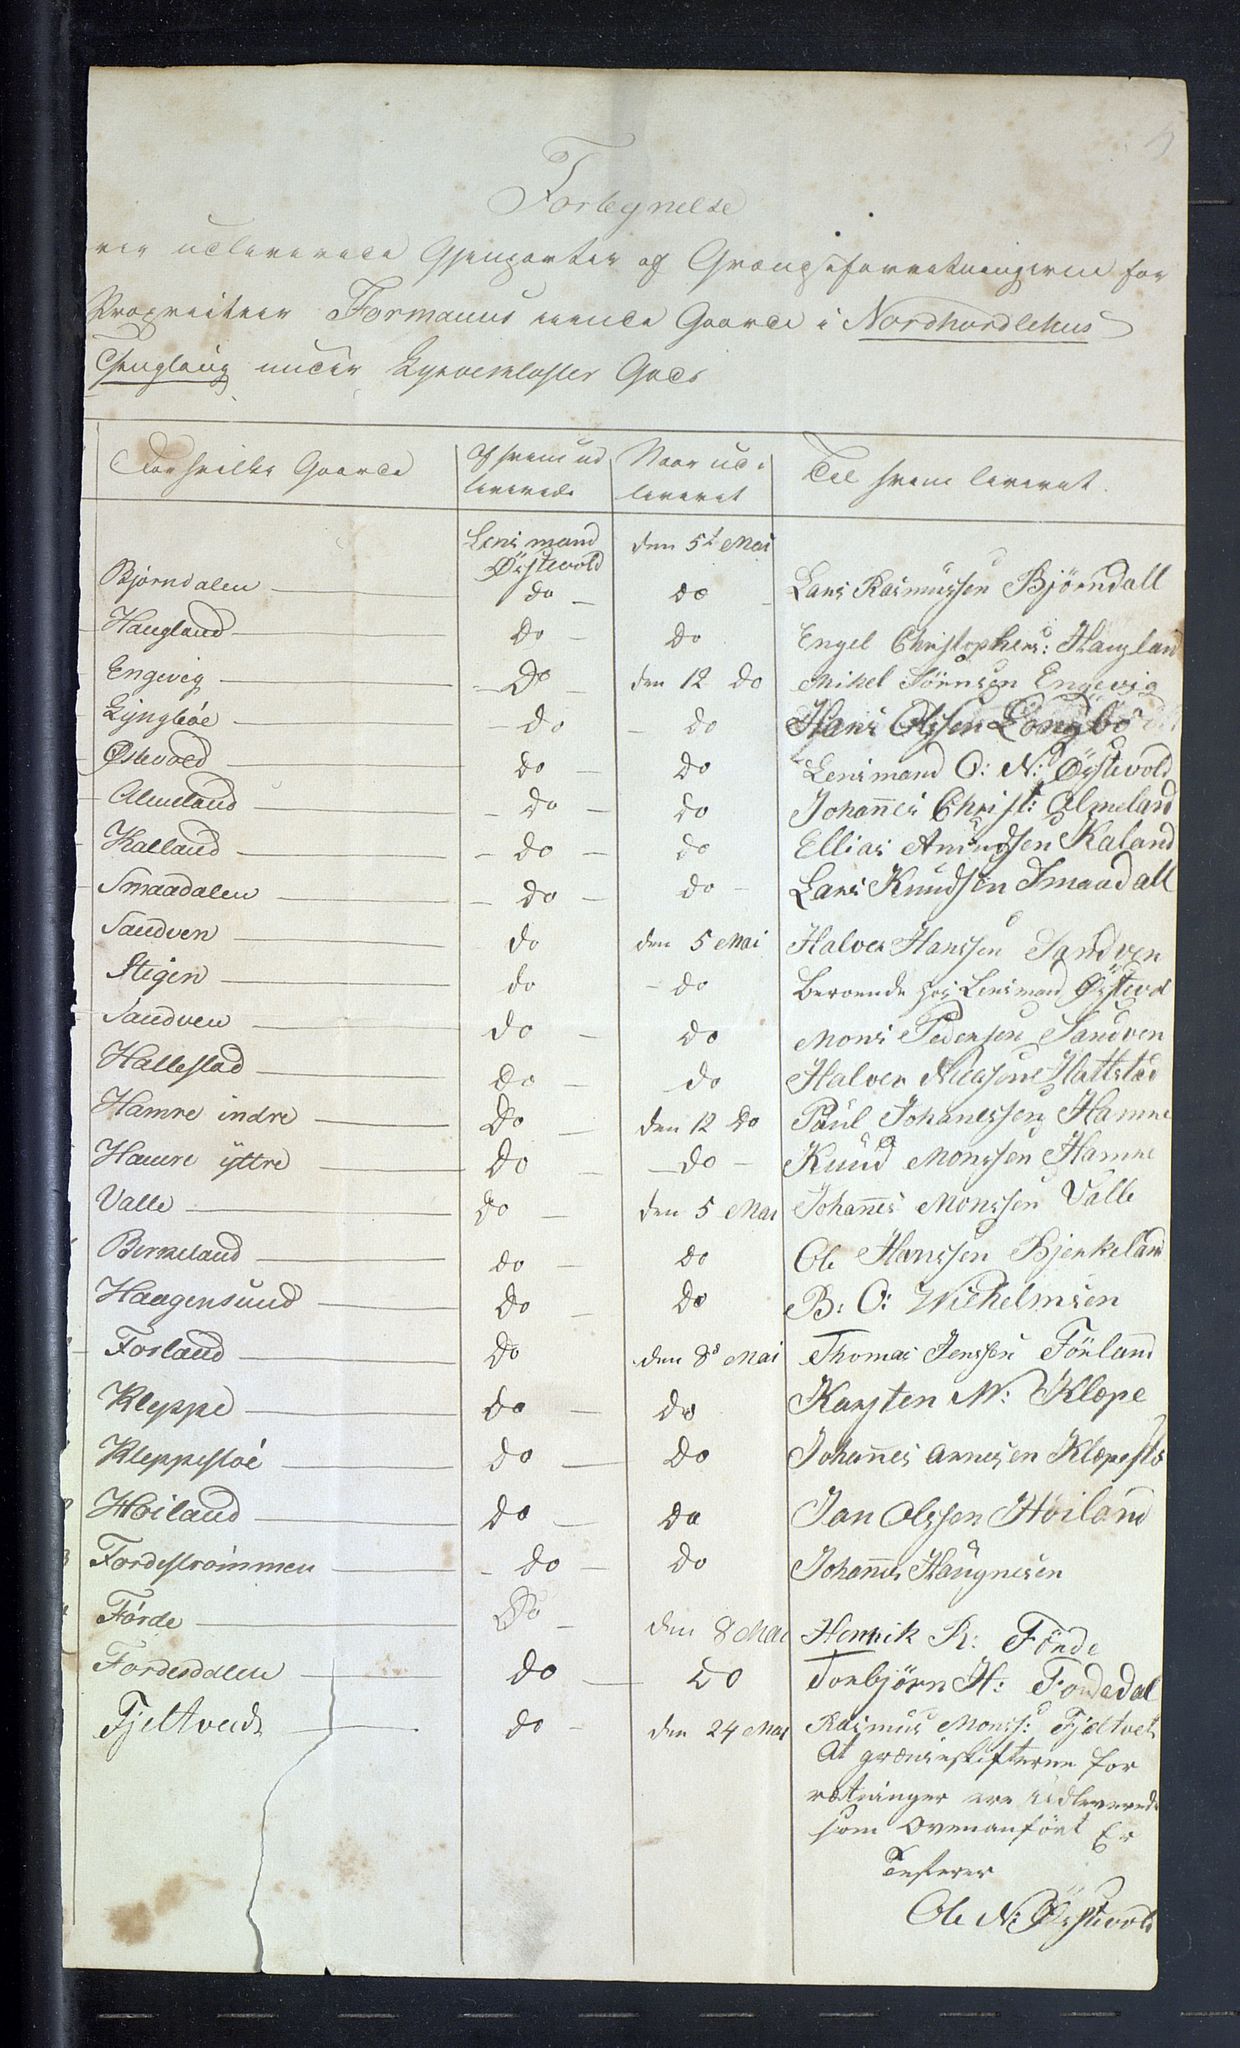 Fortegnelse
udleverede Gjenparter af Grændseforretningerne for
Proprietair Formanns eiende Gaarde i Nordhordlehns
Thinglaug under Lysekloster Gods
For hvilke Gaarde | Af hvem ud leverede | Naar ud- leveret | Til hvem leveret.
Lensmand Østevold | den 5t Mai
Bjørndalen | do | do | Lars Rasmussen Bjørndall
Haugland | do | do | Engel Christophers: Haugland
Engevig | do | den 12 do | Mikel Sørensen Engevig
Lyngbøe | do | do | Hans Olssen Löngbö
Østevold | do | do | Lensmand O: N: Östevold
Almeland | do | do | Johannes Christ: Almeland
Kalland | do | do | Ellias Amundsen Kaland
Smaadalen | do | do | Lars Knudsen Smaadall
Sandven | do | den 5 Mai | Halver Hanssen Sandven
Stegen | do | do | Beroende hos Lensmand Östevol
Sandven | do | do | Mons Pedersen Sandven
Hallestad | do | do | Halver Hattstad
Hamre indre | do | den 12 do | Paul Johanessen Hamre
Hamre ÿttre | do | do | Knud Monssen Hamre
Valle | do | den 5 Mai | Johannes Monssen Valle
Berkeland | do | do | Ole Hanssen Bjerkeland
Haagensund | do | do | B: O: Wilhelmsen
Forland | do | den 8d Mai | Thomas Jenssen Förland
Kleppe | do | do | Karsten M: Klæpe
Kleppestøe | do | do | Johannes Arnesen Klæpestö
Høiland | do | do | Jan Olssen Höiland
Fördestrømmen | do | do | Johannes Haugnesen
Førde | do | den 8 Mai | Henrik R: Förde
Fördesdalen | do | do | Torbjörn H: Fördedal
Fjeltveds | do | den 24 Mai | Rasmus Monss: Fjeltvet
At grænseskifterne for
rætninger ere Udleverede
som Ovenanfört Er
Testerer
Ole N: Östevold